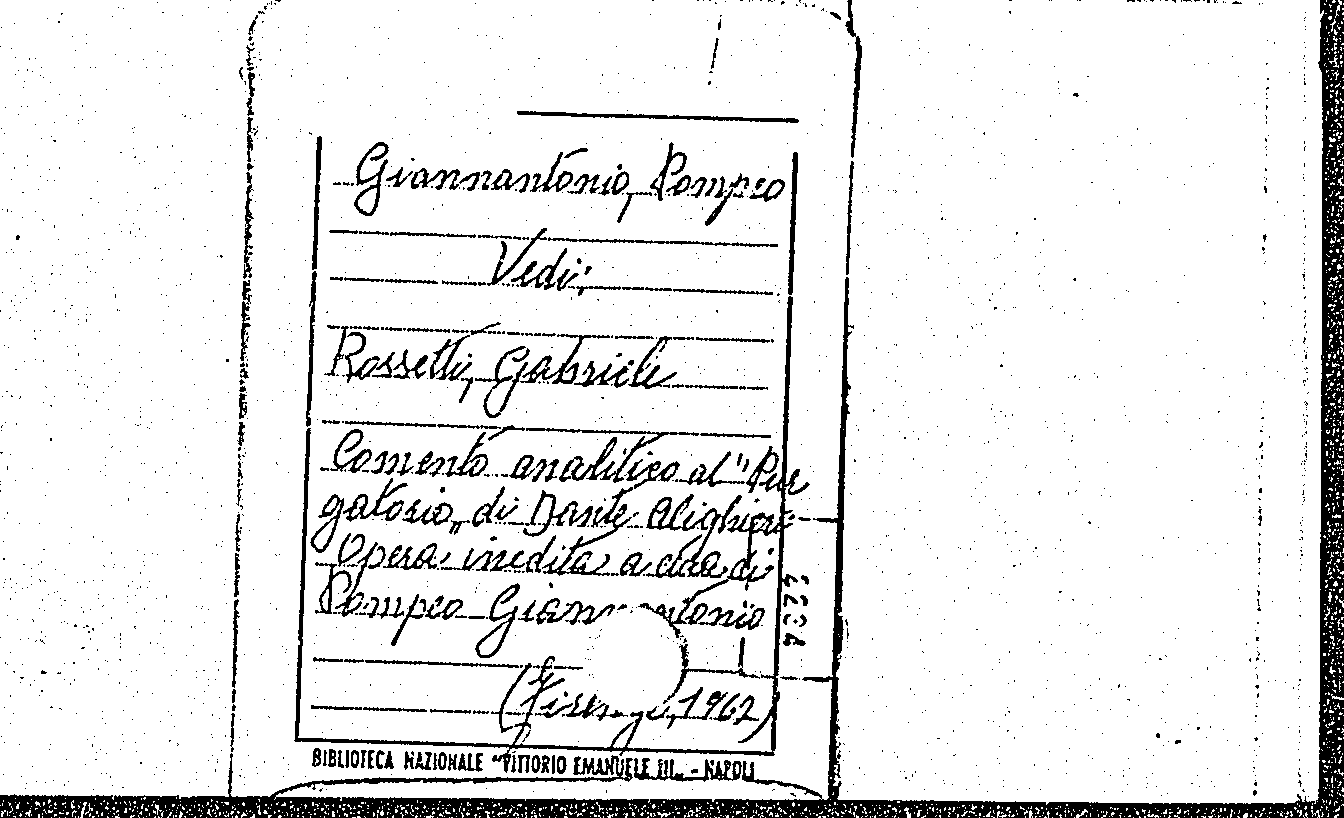 Giannantonio, Pompeo
Vedi:
Rossetti, Gabriele
Comento analitico al "Pur
gatorio„ di Dante Alighieri
Opera inedita a cura di
Pompeo Giannantonio
(Firenze, 1962)
BIBLIOTECA NAZIONALE "VITTORIO EMANUELE III„ - NAPOLI